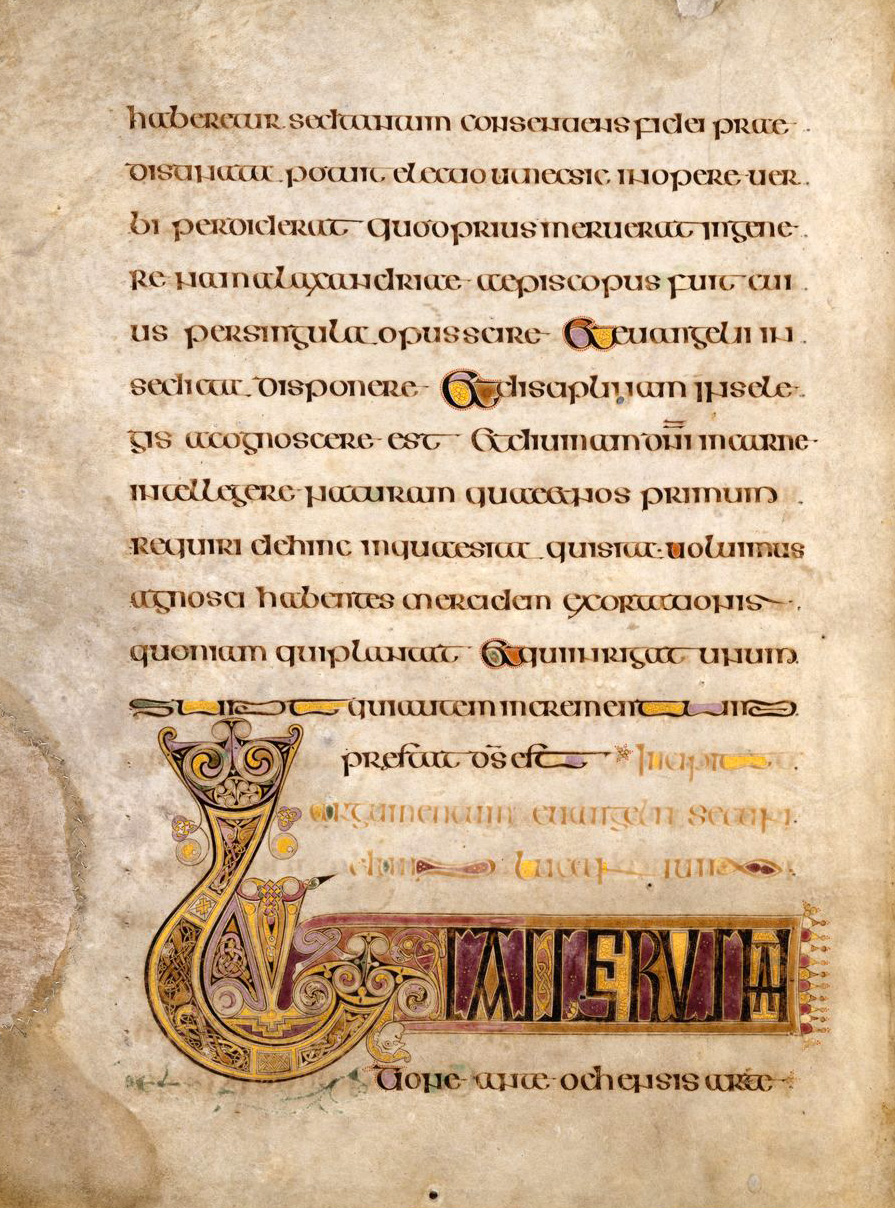 haberetur sedtantum consentiens fidei prae
distinata potuit electio utnecsic inopere uer
bi perdiderat quodprius meruerat ingene
re namalaxandriae aepiscopus fuit cui
us persingula opus scire et euangelii in
sedicta disponere et disciplinam inse le
gis acognoscere est et diuinam dni incarne
intellegere naturam quae et nos primum
requiri dehinc inquaesita quisita uolumus
agnosci habentes mercidem exorationis
quoniam quiplantat et quiinrigat unum
sunt quiautem incrementum
prestat ds est Incipit
argumentum euangelii secun
dum lucam
tione ante ochensis arte